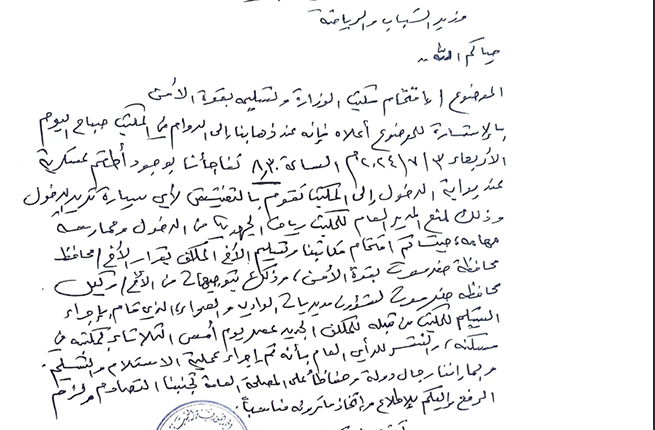 وزير الشباب والرياضة
حياكم الله ..
الموضوع / اقتحام مكتب الوزارة وتسليمه بقوة الأمن
بالإشارة للموضوع أعلاه فإنه عند ذهابنا إلى الدوام في المكتب صباح اليوم
الأربعاء ٢٠٢٤/٧/٣م الساعة ٨,٣٠ تفاجأنا بوجود أطقم عسكرية
عند بوابة الدخول إلى المكتب تقوم بالتفتيش لأي سيارة تريد الدخول
وذلك لمنع المدير العام للمكتب رياض الجهوري من الدخول وممارسة
مهامه، حيث تم اقتحام مكاتبنا وتسليم الأخ المكلف بقرار الأخ / محافظ
محافظة حضرموت بقوة الأمن، وذلك بتوجيهات من الأخ / وكيل
محافظة حضرموت لشؤون مديريات الوادي والصحراء الذي قام بإجراء
التسليم للمكتب من قبله للمكلف الجديد عصر يوم أمس الثلاثاء بمكتبه في
مسكنه، والنشر للرأي العام بأنه تم إجراء عملية الاستلام والتسليم.
وبما إننا رجال دولة وحفاظاً على المصلحة العامة تجنبنا التصادم ولزم
الرفع إليكم للإطلاع واتخاذ ماترونه مناسباً.